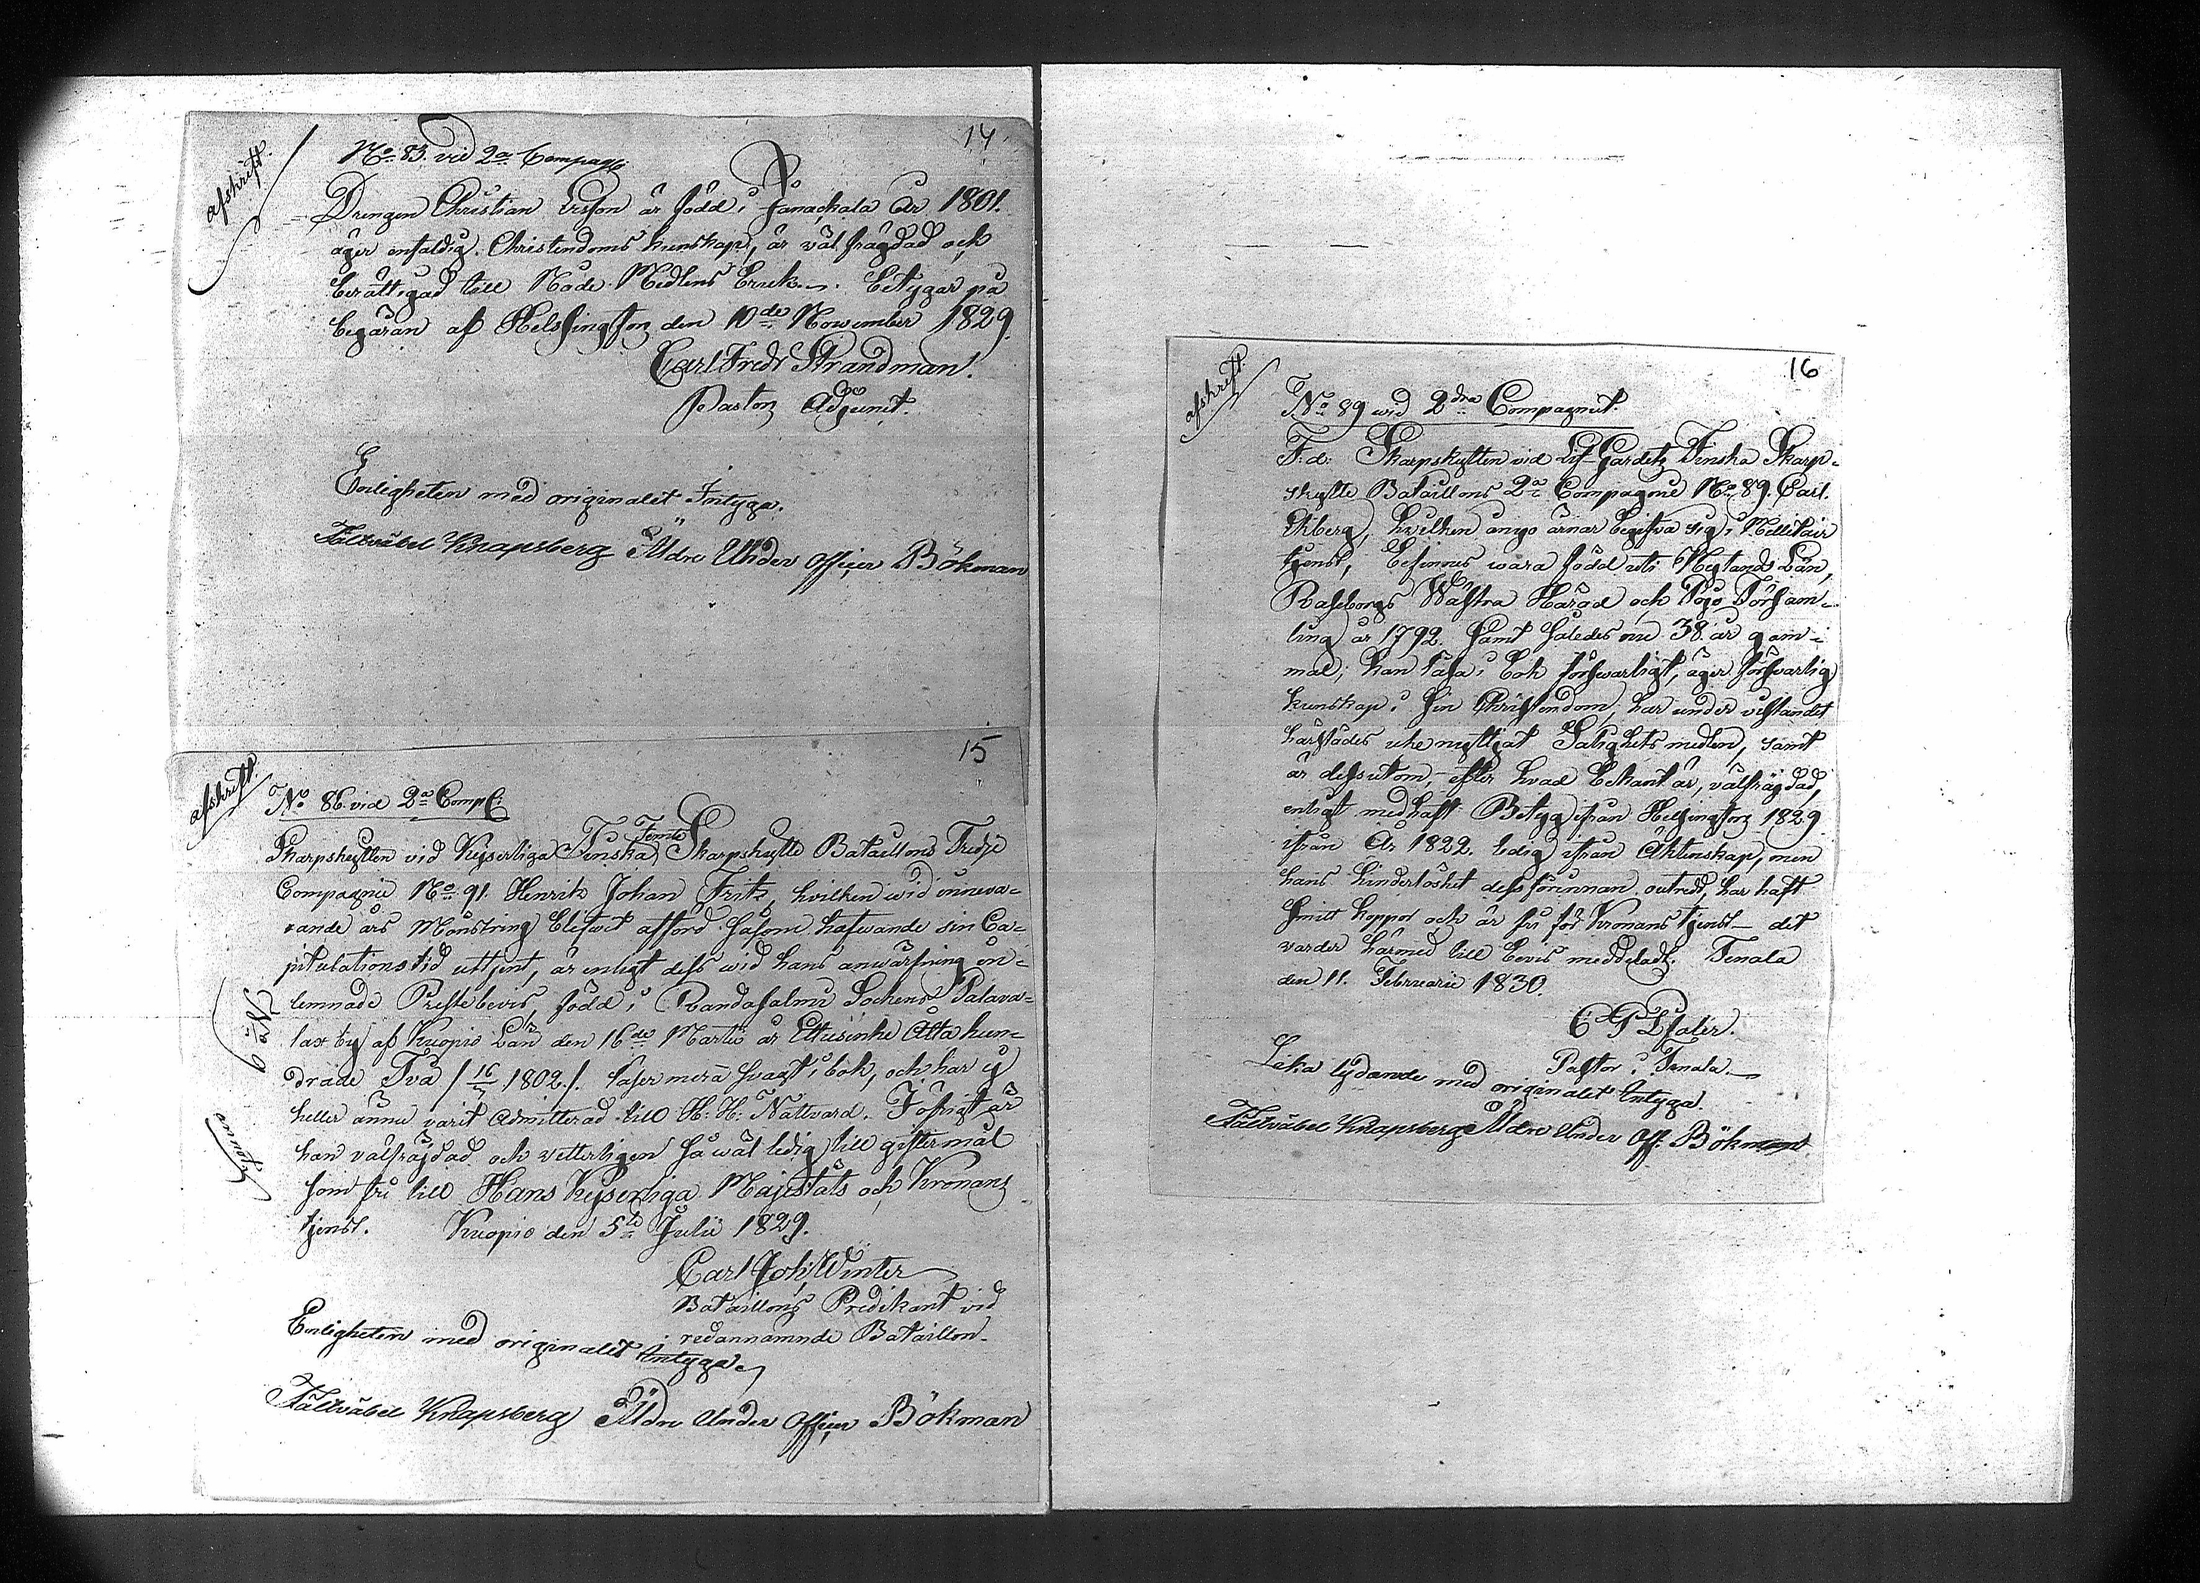 14
afskrift.
No 83. vid 2a Compag
Drengen Christian Ersson är född i Janackala år 1801.
äger enfaldig Christendoms kunskap, är väl frägdad och
berättigad till Nåde Medlens bruk. Betygar på
begäran af Helsingfors den 10de November 1829.
Carl Fredr Strandman.
Pastors Adjunct.
Enligheten med originalet Intyga.
Fältväbel Knapsberg Äldre Under Officer Bökman
15
afskrift.
No 86. vid 2a Comp:
Femte
Skarpskytten vid Keyserliga Finska Skarpskytte Bataillons Tredje
Compagnie No 91. Henrik Johan Fritz, hvilken wid innewa-
rande års Mönstring blifwit afförd såsom hafwande sin Ca-
pitulationstid uttjent, är enligt dess wid hans anwärfning in-
lemnade Prestebevis, född i Randasalmi Sochens Palava-
lax by af Kuopio Län den 16de Martii år Ettusinhe Åtta hun-
drade Två /16/3 1802./. läser mera svagt i bok, och har ej
heller ännu varit admitterad till H: H: Nattvard. I öfrigt är
han välfräjdad och vetterligen så wäl ledig till giftermål
som fri till Hans Kejserliga Majestäts och Kronans
tjenst. Kuopio den 5te Julii 1829.
No 9
Carl Joh: Winter
Bataillons Predikant vid
redannämnde Bataillon.
Enligheten med originalet Intyga
Fältväbel Knapsberg Äldre Under Officer Bökman
16
afskrift.
No 89 wid 2dra Compagniet.
F. d. Skarpskytten vid Lif-Gardets Finska Skarp-
skytte Bataillons 2a Compagnie No 89. Carl
Ekberg, hvilken ånyo ärnar begifva sig i Millitair
tjenst, befinnes wara född uti Nylands Län,
Raseborgs Wästra Härad och Pojo Försam-
ling år 1792. samt således nu 38 år gam-
mal; han läsa i bok försvarligt, äger försvarlig
kunskap i sin Christendom, har under vistandet
härstädes icke nyttjat Salighets medlen, samt
är dessutom, efter hvad bekant är, välfrägdad,
enligt medhaft Betyg ifrån Helsingfors 1829
ifrån År 1822. ledig ifrån Äktenskap, men
hans hinderlöshet dessförinnan outredd, har haft
Smitt koppor och är fri för Kronans tjenst det
varder härmed till bevis meddeladt. Tenala
den 11. Februarii 1830.
Pastor i Tenala.
Lika lydande med originalet Intyga.
Fältväbel Knapsberg Äldre Under Off. Bökman